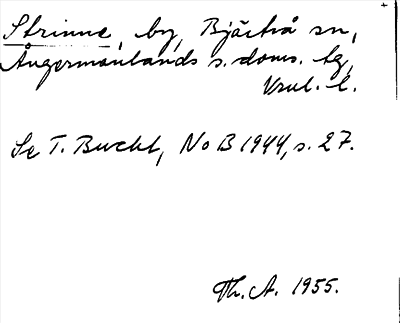 Strinne, by, Bjärtrå sn,
Ångermanlands s. doms. tg,
Vnl. l.
Se T. Bucht, NoB 1944, s. 27.
Th. A. 1955.